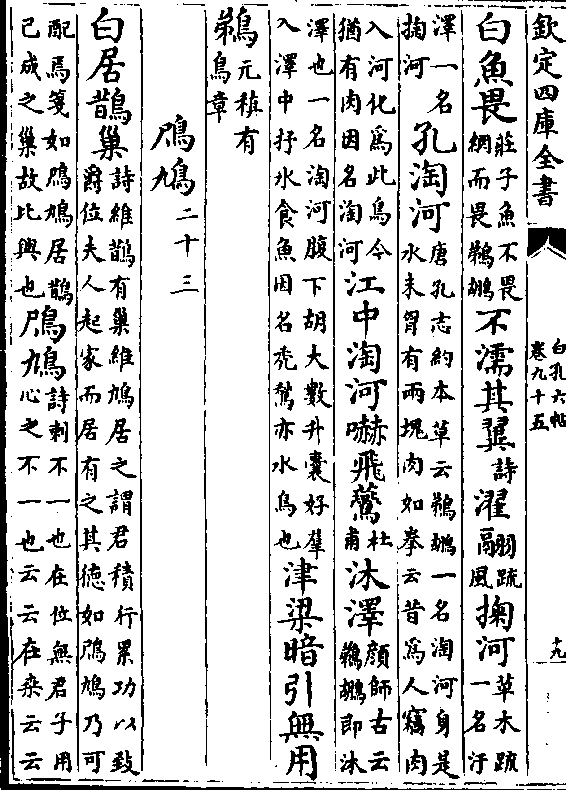 欽定四庫全書
白孔六帖
卷九十五
十九
白魚畏莊子魚不畏網而畏鵜鶘不濡其翼詩濯翮疏風掬河草木疏一名汙
澤一名掬河孔淘河唐孔志約本草云鵜鶘一名淘河身是水未胷有兩塊肉如拳云昔爲人竊肉
入河化爲此鳥今猶有肉因名淘河江中淘河嚇飛鷰杜甫沐澤顔師古云鵜鶘即沐
澤也一名淘河腹下胡大數升囊好羣入澤中抒水食魚因名禿鶖亦水鳥也津梁暗引無用
元稹有鵜鳥章
鳲鳩二十三
白居鵲巢詩維鵲有巢維鳩居之謂君積行累功以致爵位夫人起家而居有之其德如鳲鳩乃可
配焉箋如鳲鳩居鵲已成之巢故比興也鳲鳩詩刺不一也在位無君子用心之不一也云云在桑云云